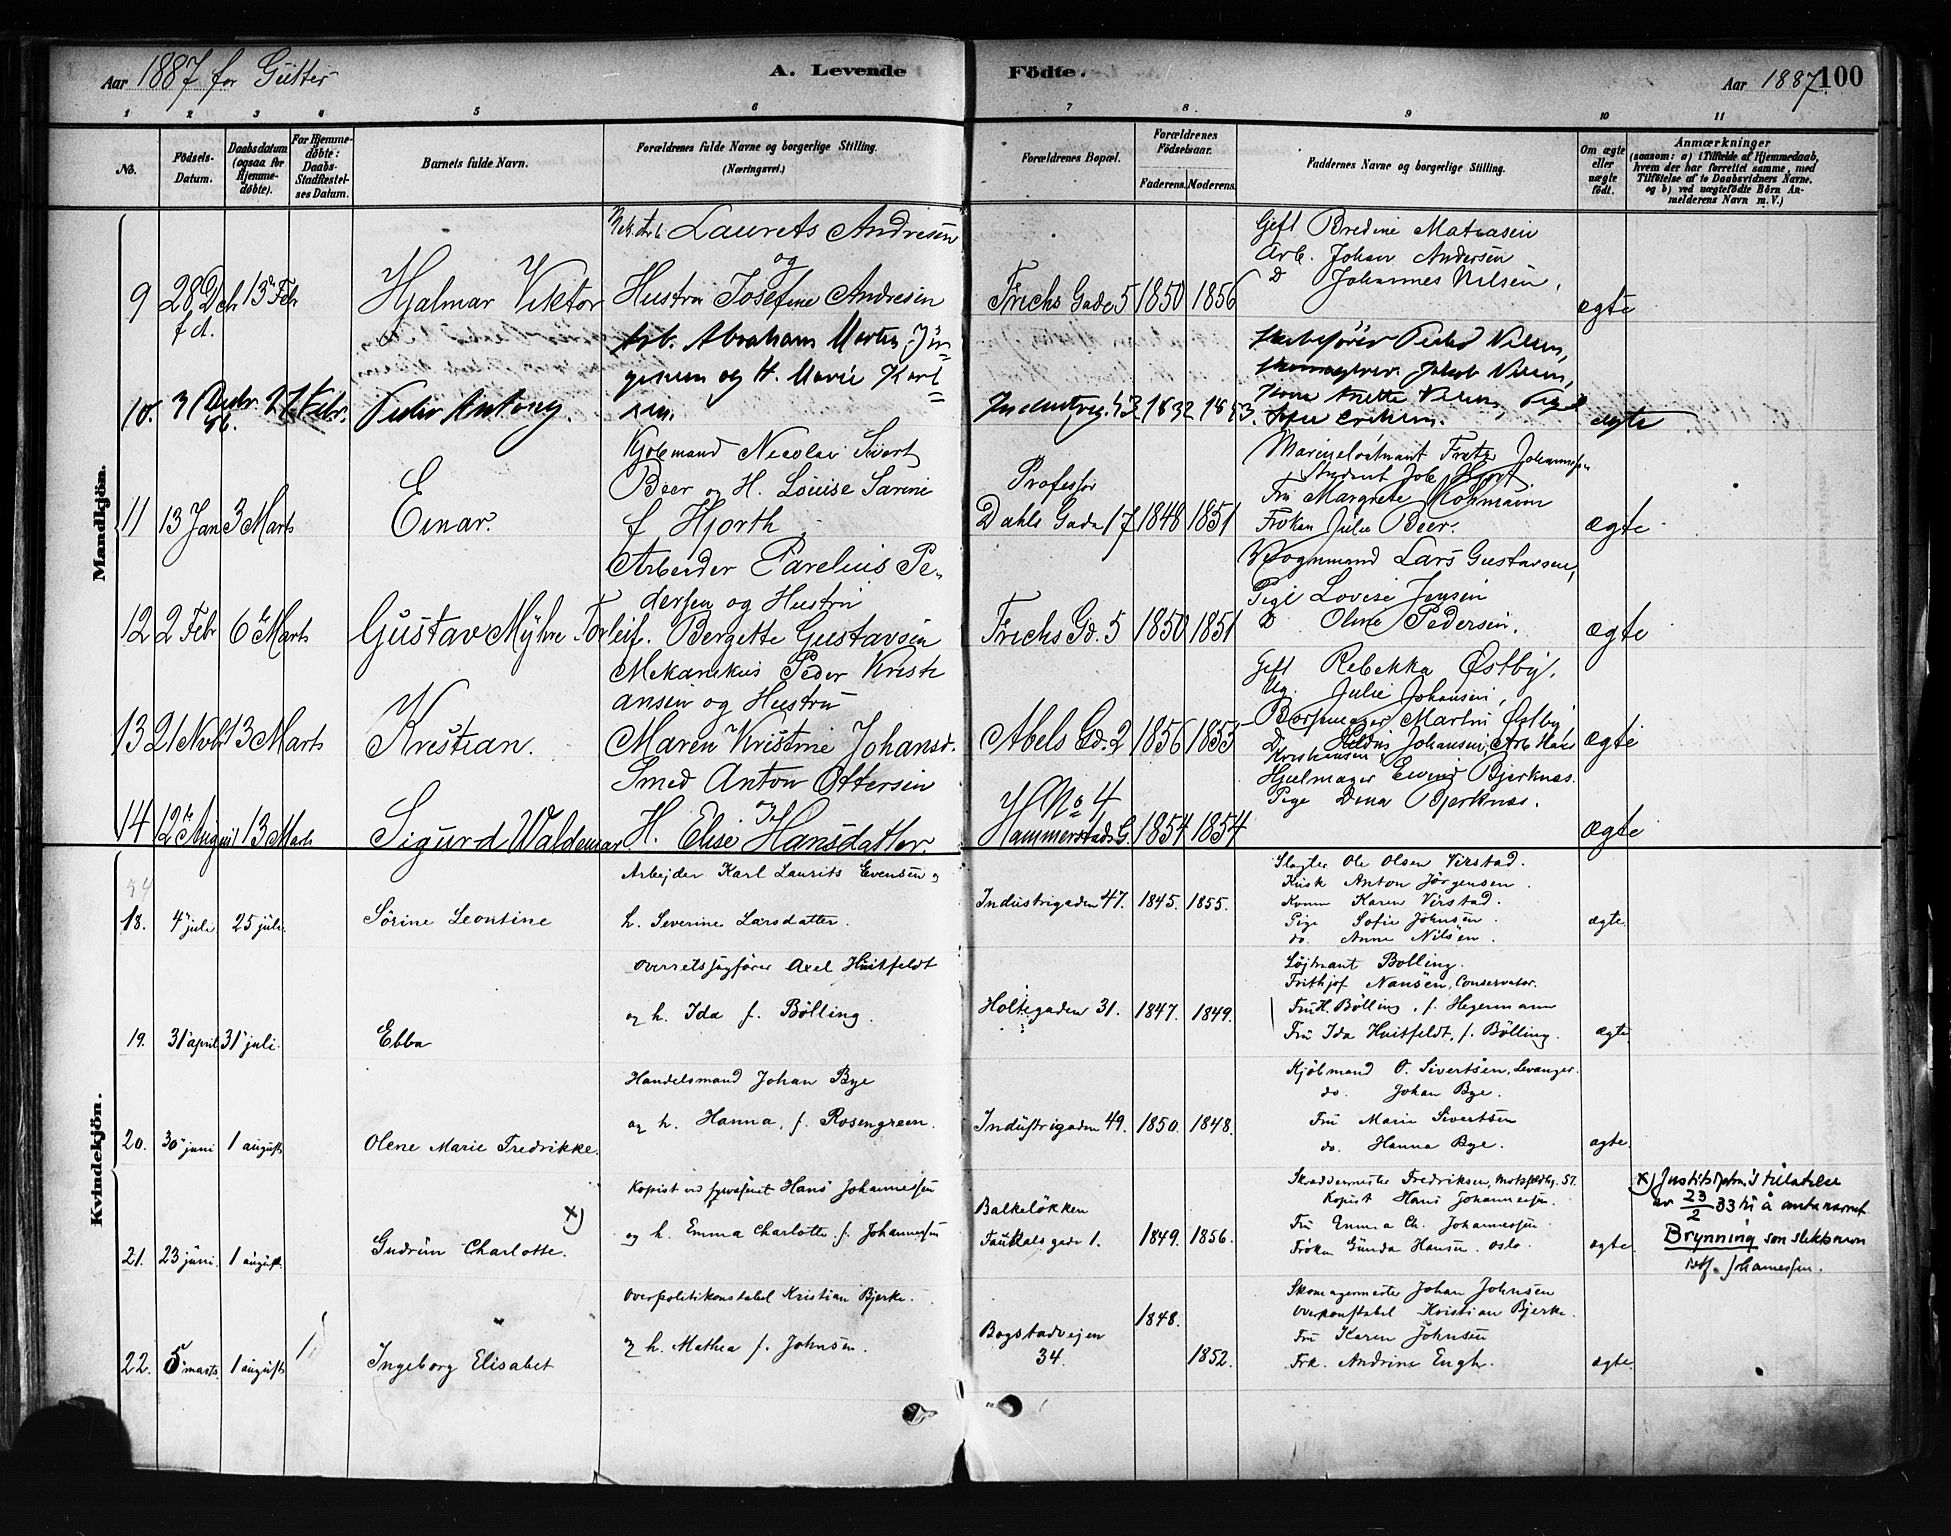 Aar 1887 for Gutter
A. Levende Födte.
Aar 1887. 100
1 2 3 4 5 6 7 8. 9 10 11
No.
Födsels-Datum.
Daabsdatum (ogsaa for Hjemmedöbte).
For Hjemmedöbte: Daabs-Stadfæstelses Datum.
Barnets fulde Navn.
Forældrenes fulde Navne og borgerlige Stilling.
(Næringsvei.)
Forældrenes Bopæl.
Forældrenes Födselsaar.
Faderens. Moderens.
Faddernes Navne og borgerlige Stilling.
Om ægte eller uægte födt.
Anmærkninger
(saasom: a) i Tilfælde af Hjemmedaab,
hvem der har forrettet samme, med
Tilföielse af to Daabsvidners Navne.
og b) ved uægtefödte Börn Anmelderens Navn m. V.)
Mandkjön.
Laurets Andresen
og
9 28 Dcbr f A. 13 Febr Hjalmar Viktor Hustru Josefine Andresen Frichs Gade 5 1850 1856 ægte
Gift Bredine Matiasen
Arb. Johan Andersen
D Johannes Nilsen.
Arb. Abraham Morten Jör-
gensen og H. Marie Karl-
sen.
10. 31 Decbr 86. 27 Febr. Peder Antony. Industrig. 43 1832 1853. ægte
Peder Nilsen,
Jakob Nilsen,
Kone Anette Nilsen, Pige
Sofie Eriksen.
Kjöbmand Nicolai Sivert
Beer og H. Louise Sarine
f Hjorth
11 13 Jan 3 Marts Einar. Professor
Dahls Gade 17 1848 1851 ægte
Marinelöitnant Fratz Johannesen
Student Joh Hjort
Fru Margrete Kohmann
Fröken Julie Beer.
Arbeider Parelius Pe-
dersen og Hustru
12 2 Febr 6 Marts Gustav Myhre Torleif. Bergette Gustavsen Frichs Gd. 5 1850 1851 ægte
Vognmand Lars Gustavsen,
Pige Lovise Jensen
D Oline Pedersen.
Mekanikus Peder Kristi
ansen og Hustru
13 21 Novb 13 Marts Kristian. Maren Kristine Johansd. Abels Gd. 2 1856 1855 ægte
Gift Rebekka Østby.
Ug. Julie Johansen,
Martin Østby
D Johansen, Arb Hans
Kristiansen
Smed Anton Ottersen
14 12te August 13 Marts Sigurd Waldemar H. Elise Hansdatter. No 4
Hammerstads G. 1854 1854 ægte
Hjulmager Bjerknæs.
Pige Dina Bjerknæs.
Kvindekjön.
Arbejder Karl Laurits Evensen og
18. 4 juli 25 juli. Sörine Leontine h. Severine Larsdatter. Industrigaden 47. 1845. 1855. ægte.
Slagter Ole Olsen Virstad.
Kusk Anton Jörgensen.
Kone Karen Virstad.
Pige Sofie Johnsen.
do. Anne Nilsen.
Overretssagförer Axel Huitfeldt
og h. Ida f. Bölling.
19. 31 april 31 juli. Ebba Holtegaden 31. 1847. 1849. ægte.
Löjtnant Bolling.
Frithjof Nansen, Conservator.
Fru H. Bölling, f. Hegermann
Fru Ida Huitfeldt, f. Bölling.
Handelsmand Johan Bye
og h. Hanna, f. Rosengreen.
20. 30 juni 1 august Olene Marie Fredrikke. Industrigaden 49. 1850. 1848. ægte.
Kjöbmand O. Sivertsen, Levanger.
do. Johan Bye.
Fru Marie Sivertsen
do. Hanna Bye.
Kopist ved Hans Johannessen
og h. Emma Charlotte f. Johannessen
21. 23 juni. 1 august. Gudrun Charlotte. x) Balkeløkken
gade 1. 1849. 1856. ægte.
Skræddermester Fredriksen, 57.
Kopist Hans Johannessen.
Fru Emma Ch. Johannessen.
Fröken Gunda Hansen. Oslo.
x) Justitsdptm.'s tillatelse
av 23/2 33 til å anta navnet
Brynning som slektsnavn
istf. Johannessen.
Overpolitikonstabel Kristian Bjerke.
og h. Mathea f. Johnsen.
22. 5 marts. 1 august Ingeborg Elisabet Bogstadvejen
34. 1848. 1852. ægte.
Skomagermester Johan Johnsen
Overkonstabel Kristian Bjerke.
Fru Karen Johnsen
Frk. Andrine Engh.